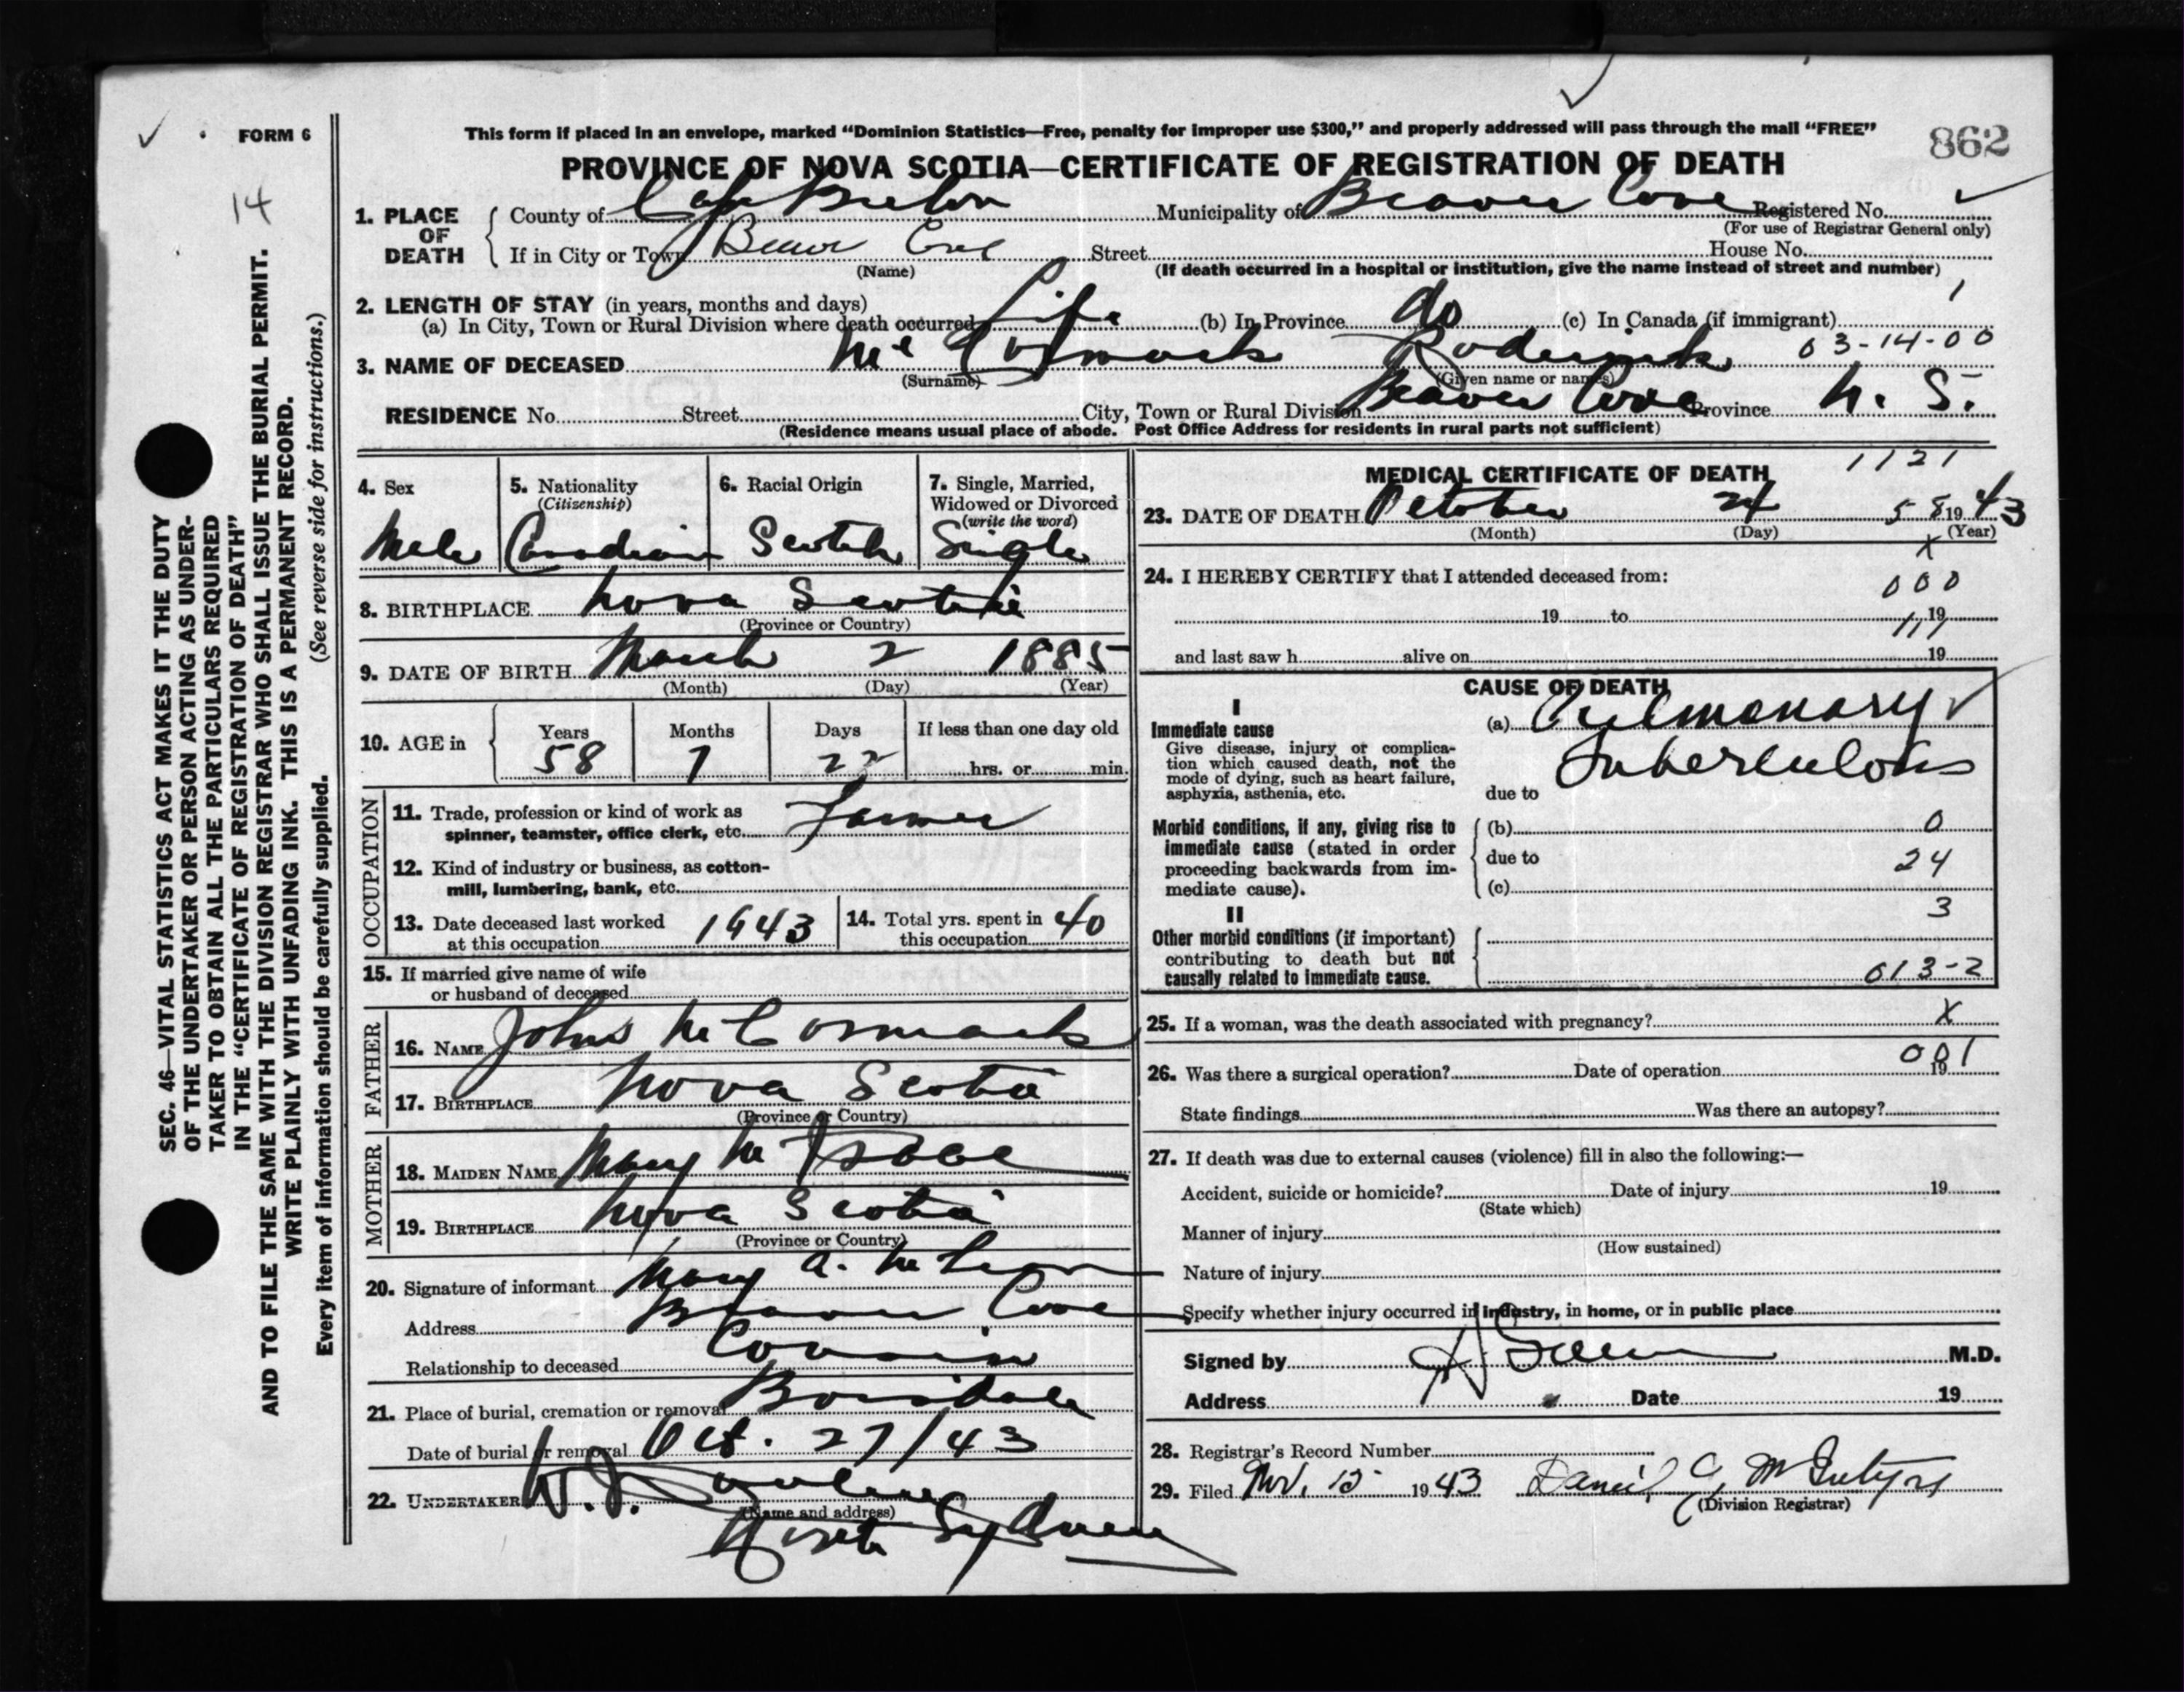 This form if placed in an envelope, marked “Dominion Statistics—Free, penalty for improper use $300,” and properly addressed will pass through the mail “FREE”
FORM 6
862
14
PROVINCE OF NOVA SCOTIA—CERTIFICATE OF REGISTRATION OF DEATH
1. PLACE OF DEATH
County of Cape Breton Municipality of Beaver Cove Registered No.
(For use of Registrar General only)
If in City or Town Beaver Cove Street House No.
(Name) (If death occurred in a hospital or institution, give the name instead of street and number)
2. LENGTH OF STAY (in years, months and days) 1
(a) In City, Town or Rural Division where death occurred Life (b) In Province do (c) In Canada (if immigrant)
03-14-00
3. NAME OF DECEASED Mc Cormack Roderick
(Surname) (Given name or names)
RESIDENCE No. Street City, Town or Rural Division Beaver Cove Province N. S.
(Residence means usual place of abode. Post Office Address for residents in rural parts not sufficient)
4. Sex Male
5. Nationality (Citizenship) Canadian
6. Racial Origin Scotch
7. Single, Married, Widowed or Divorced (write the word) Single
8. BIRTHPLACE Nova Scotia
(Province or Country)
9. DATE OF BIRTH March 2 1885
(Month) (Day) (Year)
10. AGE in Years 58 Months 7 Days 22 If less than one day old
hrs. or min.
OCCUPATION
11. Trade, profession or kind of work as
spinner, teamster, office clerk, etc. Farmer
12. Kind of industry or business, as cotton-
mill, lumbering, bank, etc.
13. Date deceased last worked
at this occupation 1943
14. Total yrs. spent in
this occupation 40
15. If married give name of wife
or husband of deceased
FATHER
16. NAME John Mc Cormack
17. BIRTHPLACE Nova Scotia
(Province or Country)
MOTHER
18. MAIDEN NAME Mary Mc Isaac
19. BIRTHPLACE Nova Scotia
(Province or Country)
20. Signature of informant Mary A. Mc
Address Beaver Cove
Relationship to deceased Cousin
21. Place of burial, cremation or removal Boisdale
Date of burial or removal Oct. 27/43
22. UNDERTAKER W. J.
(Name and address)
North Sydney
MEDICAL CERTIFICATE OF DEATH
1121
23. DATE OF DEATH October 24 58 1943
(Month) (Day) (Year)
X
24. I HEREBY CERTIFY that I attended deceased from:
000
19 to 19
111
and last saw h alive on 19
CAUSE OF DEATH
I
Immediate cause
Give disease, injury or complica-
tion which caused death, not the
mode of dying, such as heart failure,
asphyxia, asthenia, etc.
(a) Pulmonary
Tuberculosis
due to
Morbid conditions, if any, giving rise to
immediate cause (stated in order
proceeding backwards from im-
mediate cause).
(b) 0
due to 24
(c)
3
II
Other morbid conditions (if important)
contributing to death but not
causally related to immediate cause.
013-2
25. If a woman, was the death associated with pregnancy? X
001
26. Was there a surgical operation? Date of operation 19
State findings Was there an autopsy?
27. If death was due to external causes (violence) fill in also the following:—
Accident, suicide or homicide? Date of injury 19
(State which)
Manner of injury
(How sustained)
Nature of injury
Specify whether injury occurred in industry, in home, or in public place
Signed by M.D.
Address Date 19
28. Registrar's Record Number
29. Filed Nov. 1943 Daniel McIntyre
(Division Registrar)
SEC. 46—VITAL STATISTICS ACT MAKES IT THE DUTY
OF THE UNDERTAKER OR PERSON ACTING AS UNDER-
TAKER TO OBTAIN ALL THE PARTICULARS REQUIRED
IN THE “CERTIFICATE OF REGISTRATION OF DEATH”
AND TO FILE THE SAME WITH THE DIVISION REGISTRAR WHO SHALL ISSUE THE BURIAL PERMIT.
WRITE PLAINLY WITH UNFADING INK. THIS IS A PERMANENT RECORD.
Every item of information should be carefully supplied. (See reverse side for instructions.)